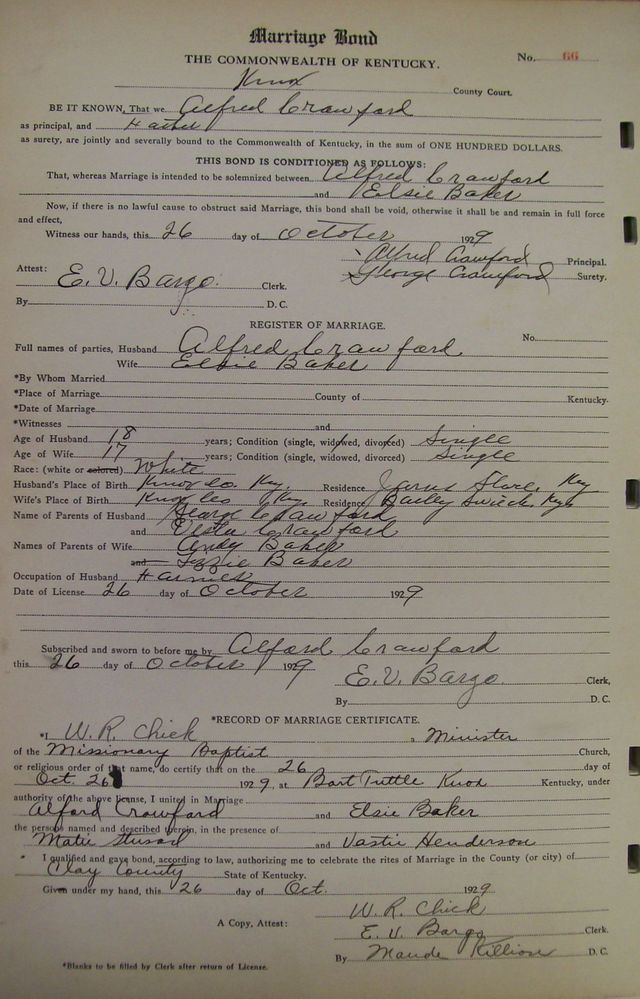 Marriage Bond
THE COMMONWEALTH OF KENTUCKY. No. 66
Knox County Court.
BE IT KNOWN, That we Alfred Crawford
as principal, and
as surety, are jointly and severally bound to the Commonwealth of Kentucky, in the sum of ONE HUNDRED DOLLARS.
THIS BOND IS CONDITIONED AS FOLLOWS:
That, whereas Marriage is intended to be solemnized between Alfred Crawford
and Elsie Baker
Now, if there is no lawful cause to obstruct said Marriage, this bond shall be void, otherwise it shall be and remain in full force
and effect,
Witness our hands, this 26 day of October 1929
Alfred Crawford Principal.
Attest: George Crawford Surety.
E. V. Bargo Clerk.
By D. C.
REGISTER OF MARRIAGE.
Full names of parties, Husband Alfred Crawford No.
Wife Elsie Baker
*By Whom Married
*Place of Marriage County of Kentucky.
*Date of Marriage
*Witnesses and
Age of Husband 18 years; Condition (single, widowed, divorced) Single
Age of Wife 17 years; Condition (single, widowed, divorced) Single
Race: (white or colored) White
Husband's Place of Birth Knox Co. Ky. Residence Store, Ky
Wife's Place of Birth Knox Co Ky. Residence Bailey Ky
Name of Parents of Husband George Crawford
and Crawford
Names of Parents of Wife Andy Baker
and Baker
Occupation of Husband
Date of License 26 day of October 1929
Subscribed and sworn to before me by Alford Crawford
this 26 day of October 1929
E. V. Bargo Clerk,
By D. C.
*RECORD OF MARRIAGE CERTIFICATE.
*I W. R. Chick, a Minister
of the Missionary Baptist Church,
or religious order of that name, do certify that on the 26 day of
Oct. 26 1929, at Bart Tuttle Knox Kentucky, under
authority of the above license, I united in Marriage
Alford Crawford and Elsie Baker
the persons named and described therein, in the presence of
Matie and Vastie Henderson
I qualified and gave bond, according to law, authorizing me to celebrate the rites of Marriage in the County (or city) of
Clay County State of Kentucky.
Given under my hand, this 26 day of Oct. 1929
W. R. Chick
A Copy, Attest: E. V. Bargo Clerk.
By Maude Killion D. C.
*Blanks to be filled by Clerk after return of License.